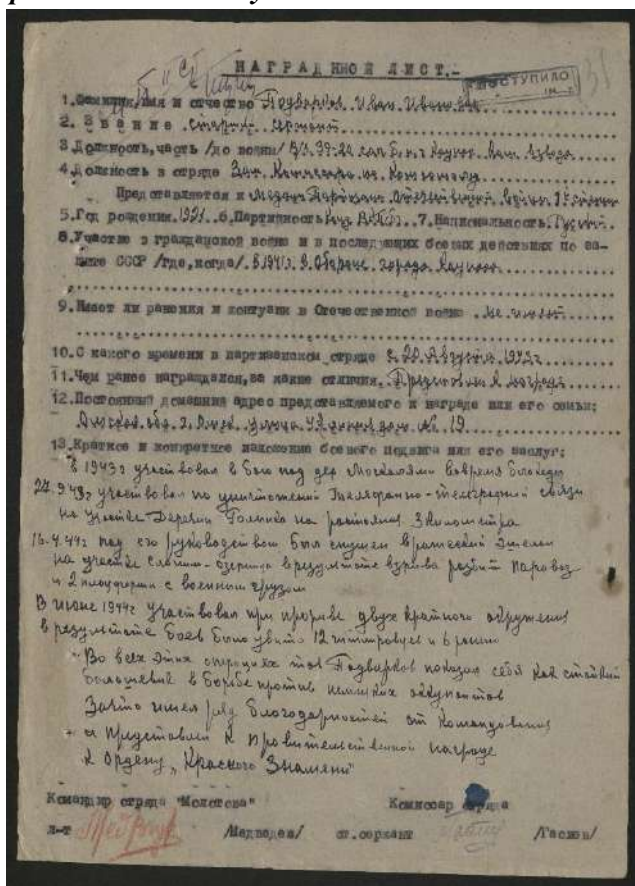 НАГРАДНОЙ ЛИСТ.-
ПОСТУПИЛО
1.Фамилия,имя и отчество Подварков Иван Иванович
2. Звание Старший Сержант
3.Должность,часть /до войны/
4.Должность в отряде Зам. Комиссара по Комсомолу
Представляется к Медали Партизан Отечественной войны
5.Год рождения.1921. 6.Партийность 7.Национальность.Русский
8.Участие в гражданской войне и в последующих боевых действиях по за-
щите СССР /где,когда/. В 1941г. В Обороне города Каунас
9.Имеет ли ранения и контузии в Отечественной войне не имеет
10.С какого времени в партизанском отряде с 20 Августа 1943г.
11.Чем ранее награждался,за какие отличия.
12.Постоянный домашний адрес представляемого к награде или его семьи:
Омская обл. г. Омск улица дом № 19
13.Краткое и конкретное изложение боевого подвига или его заслуг:
в 1943г участвовал в бою под дер Москалями вовремя блокады
участвовал по уничтожений Телефанно-телеграфной связи
на участке Деречин Голынка на растояния 3 километра
16.4.44г под его руководством был спущен вражеский эшелон
на участке Слоним-Озерница в результате взрыва разбит паровоз
и 2 платформы с военным грузом
В июне 1944г участвовал при прорыве двух кратного окружения
в результате боев было убито 12 гитлеровцев и 6 ранено
Во всех этих операциях тов Подварков показал себя как стойкий
большевик в борьбе против немецких оккупантов
Зачто имел ряд благодарностей от Командования
и Представлен к правительственной награде
к Ордену „Красного Знамени"
Командир отряда "Молотова" Комиссар отряда
л-т /Медведев/ ст.сержант /Гаспев/